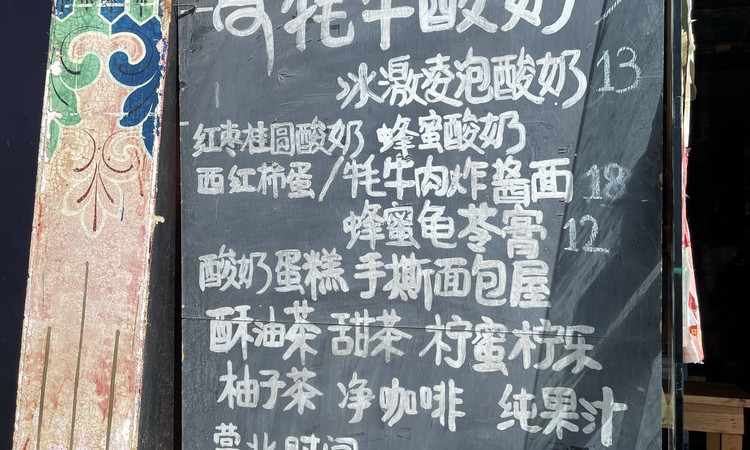 牦牛酸奶
冰激凌泡酸奶 13
红枣桂圆酸奶 蜂蜜酸奶
西红柿蛋/牦牛肉炸酱面 18
蜂蜜龟苓膏 12
酸奶蛋糕 手撕面包屋
酥油茶 甜茶 柠蜜柠乐
柚子茶 净咖啡 纯果汁
营业时间